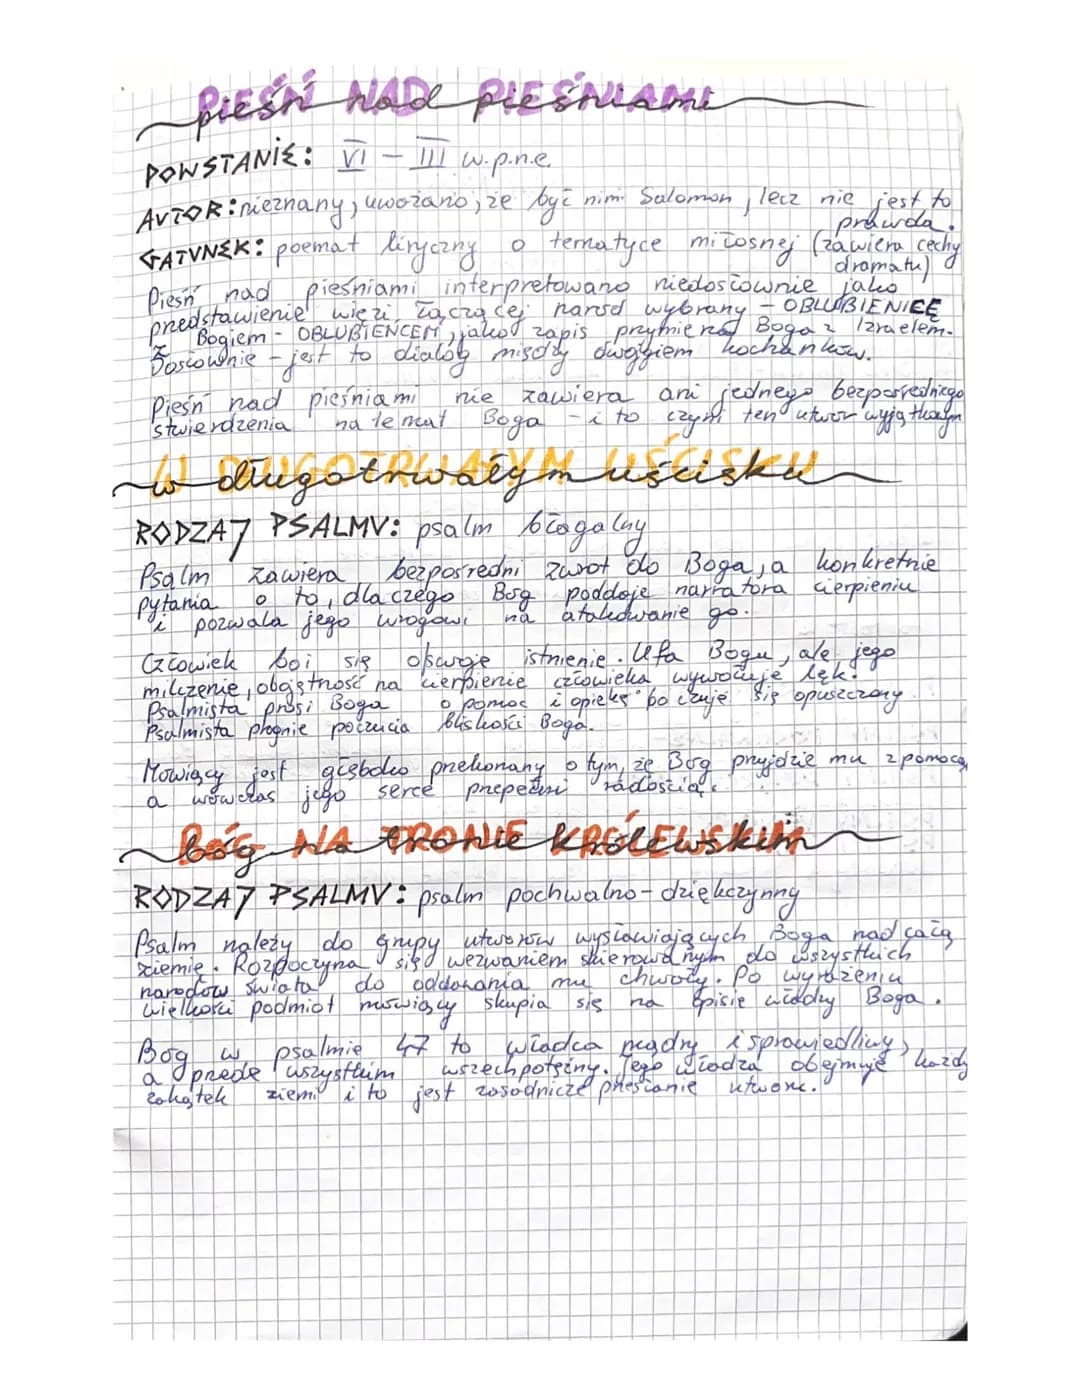 PIEŚŃ NAD PIEŚNIAMI
POWSTANIE: VI - III w.p.n.e.
AUTOR: nieznany, uważano, że być nim Salomon, lecz nie jest to
prawda.
GATUNEK: poemat liryczny o tematyce miłosnej (zawiera cechy
dramatu)
Pieśń nad pieśniami interpretowano niedosłownie jako
przedstawienie więzi łączącej naród wybrany - OBLUBIENICĘ
z Bogiem - OBLUBIEŃCEM, jako zapis przymierza Boga z Izraelem.
Dosłownie - jest to dialog między dwojgiem kochanków.
Pieśń nad pieśniami nie zawiera ani jednego bezpośredniego
stwierdzenia na temat Boga - i to czyni ten utwór wyjątkowym
W DŁUGOTRWAŁYM UŚCISKU
RODZAJ PSALMU: psalm błagalny
Psalm zawiera bezpośredni zwrot do Boga, a konkretnie
pytania o to, dlaczego Bóg poddaje narratora cierpieniu
i pozwala jego wrogowi na atakowanie go.
Człowiek boi się o swoje istnienie. Ufa Bogu, ale jego
milczenie, obojętność na cierpienie człowieka wywołuje lęk.
Psalmista prosi Boga o pomoc i opiekę bo czuje się opuszczony
Psalmista pragnie poczucia bliskości Boga.
Mówiący jest głęboko przekonany o tym, że Bóg przyjdzie mu z pomocą,
a wówczas jego serce przepełni radością.
BÓG NA TRONIE KRÓLEWSKIM
RODZAJ PSALMU: psalm pochwalno-dziękczynny
Psalm należy do grupy utworów wysławiających Boga nad całą
ziemię. Rozpoczyna się wezwaniem skierowanym do wszystkich
narodów świata do oddawania mu chwały. Po wyrażeniu
wielkości podmiot mówiący skupia się na opisie władzy Boga.
Bóg w psalmie 47 to władca mądry i sprawiedliwy,
a przede wszystkim wszechpotężny. Jego władza obejmuje każdy
zakątek ziemi i to jest zasadnicze przesłanie utworu.